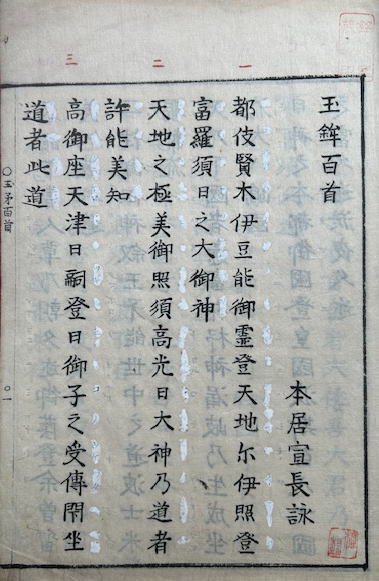 一
二
三
玉鉾百首
本居宣長詠
都伎賢木伊豆能御靈登天地尓伊照登
富羅須日之大御神
天地之極美御照須高光日大神乃道者
許能美知
高御座天津日嗣登日御子之受傳閇坐
道者此道
○玉矛百首
○一